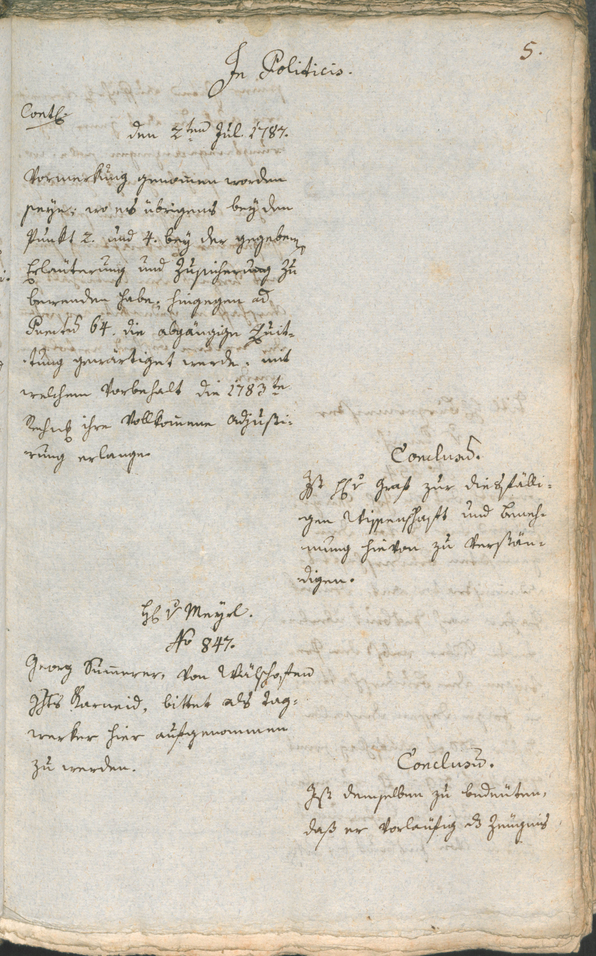 5.
In Politicis.
Contl:
den 2ten Jul. 1787.
Vormerkung genommen worden
seye; wo es übrigens bey den
Punkt 2. und 4. bey der gegebenen
Erläuterung und Zusicherung zu
bewenden habe; hingegen ad
Punctum 64. die abgängige Quit-
tung gewärtiget werde, mit
welchem Vorbehalt die 1783te
ihre vollkommene Adjusti-
rung erlange.
Conclusum.
Ist H: v Graf zur diesfälli-
gen Wissenschaft und Beneh-
mung hievon zu verstän-
digen.
H: v Mayrl.
No 847.
Georg Simmerer, von Wälschofen
Ghts Karneid, bittet als Tag-
werker hier aufgenommen
zu werden.
Conclusum.
Ist demselben zu bedeuten,
daß er vorläufig das Zeugnis